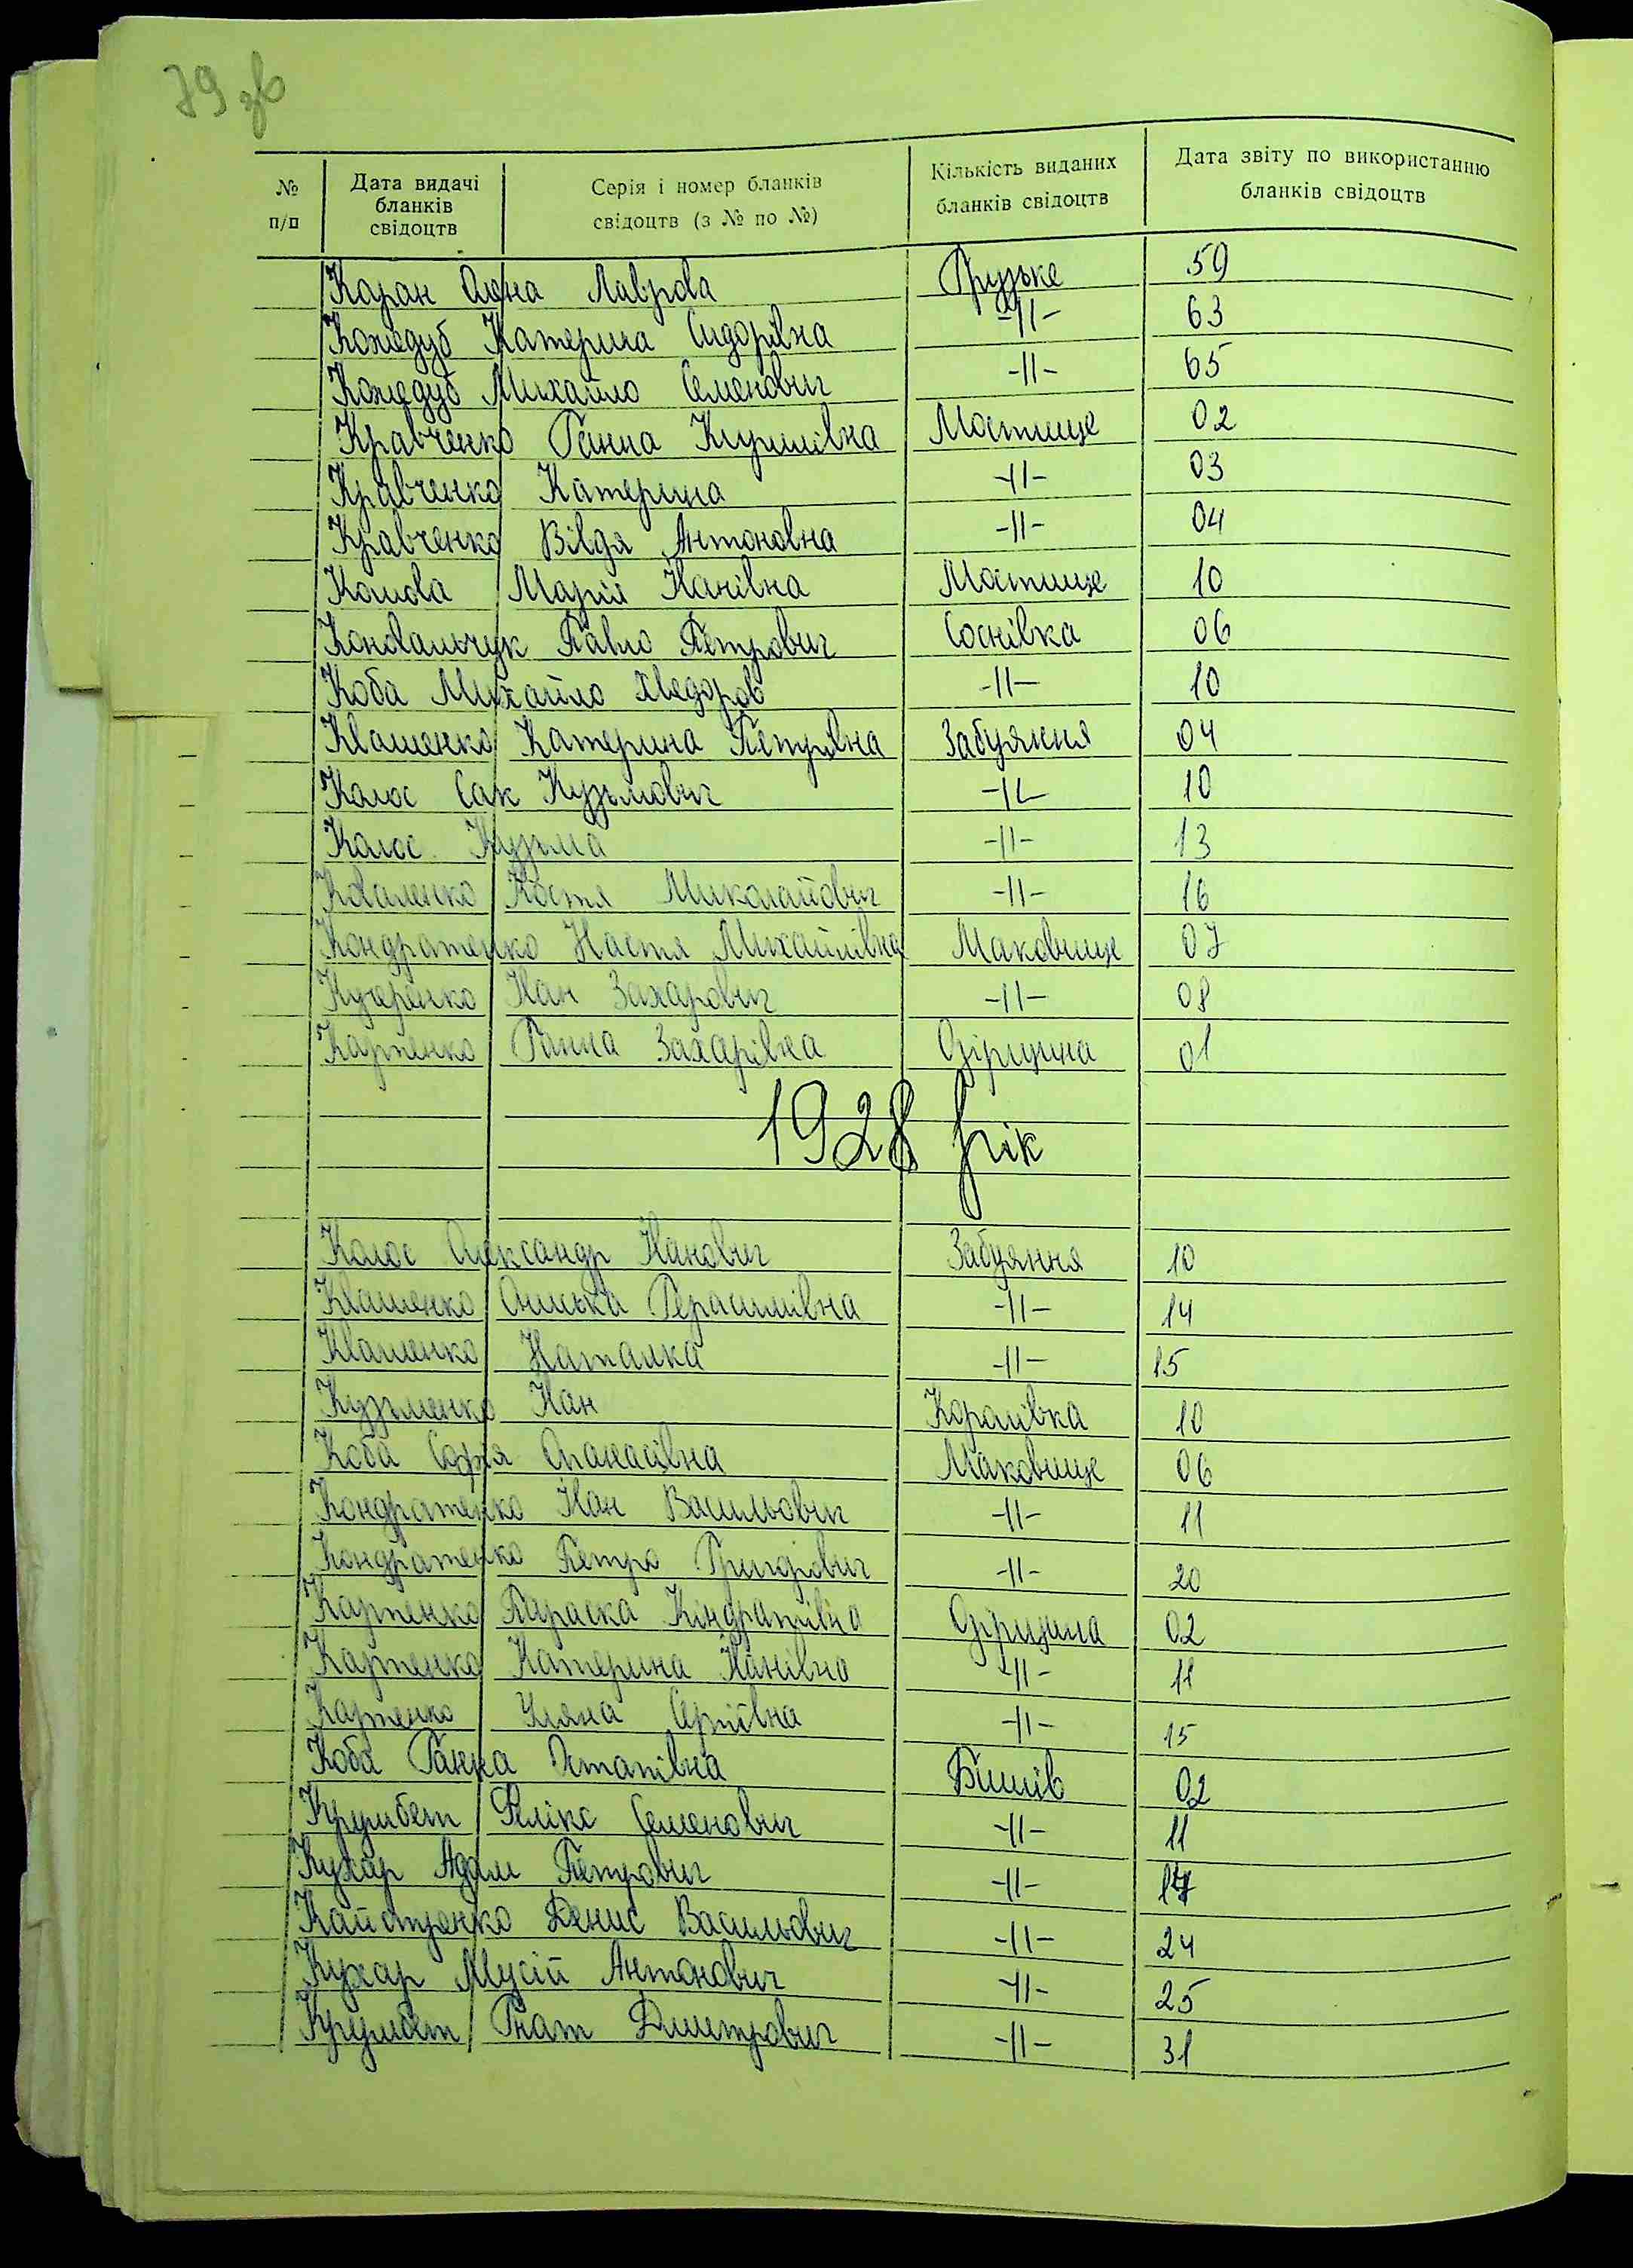 79 зв
№ п/п Дата видачі бланків свідоцтв Серія і номер бланків свідоцтв (з № по №) Кількість виданих бланків свідоцтв Дата звіту по використанню бланків свідоцтв
Каран Лаврова Грузьке 59
Кожедуб Катерина Сидорівна -||- 63
Кожедуб Михайло Семенович -||- 65
Кравченко Ганна Кирилівна Мостище 02
Кравченко Катерина -||- 03
Кравченко Вівдя Антоновна -||- 04
Марія Іванівна Мостище 10
Коновальчук Павло Петрович Соснівка 06
Коба Михайло Хведоров -||- 10
Квашенко Катерина Петрівна Забуяння 04
Колос Сак Кузьмович -||- 10
Колос Кузьма -||- 13
Коваленко Костя Миколайович -||- 16
Кондратенко Настя Михайлівна Маковище 07
Кучеренко Іван Захарович -||- 08
Карпенко Ганна Захарівна 01
1928 рік
Колос Олександр Іванович Забуяння 10
Квашенко Герасимівна -||- 14
Квашенко Наталка -||- 15
Кузьменко Іван Королівка 10
Коба Софія Опанасівна Маковище 06
Кондратенко Іван Васильович -||- 11
Кондратенко Петро Григорович -||- 20
Карпенко Параска Кіндратівна 02
Карпенко Катерина Іванівна -||- 11
Карпенко Уляна Сергіївна -||- 15
Коба Ганна Остапівна Бишів 02
Крумбет Фелікс Семенович -||- 11
Кухар Адам Петрович -||- 17
Кайстренко Денис Васильович -||- 24
Кухар Мусій Антонович -||- 25
Крумбет Гнат Дмитрович -||- 31